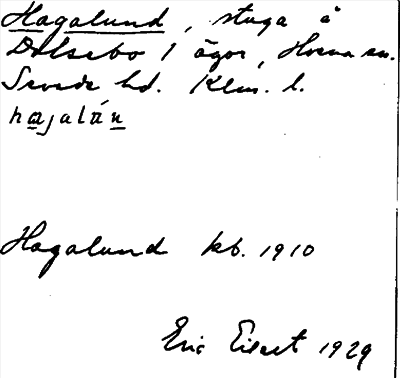 Hagalund, stuga å
Dalsebo 1 ägor, Hvena sn.
Sevede hd. Klm. l.
hagalún
Hagalund kb. 1910
Eric Elert 1929